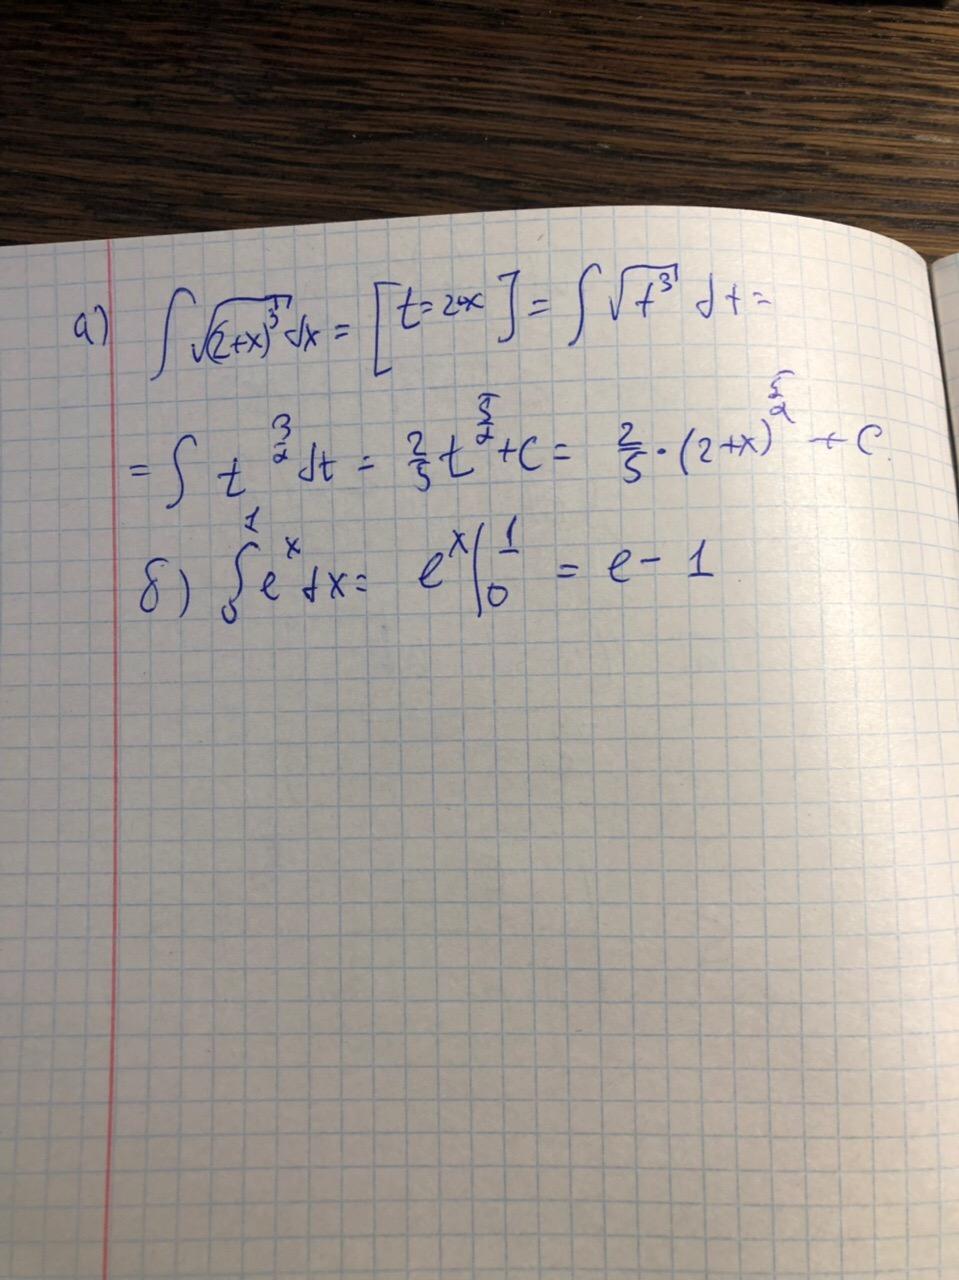 а) ∫ √(2+x)³ dx = [t=2+x] = ∫ √t³ dt =
= ∫ t^(3/2) dt = 2/5 t^(5/2) + C = 2/5 · (2+x)^(5/2) + C.
б) ∫₀¹ eˣ dx = eˣ |₀¹ = e - 1